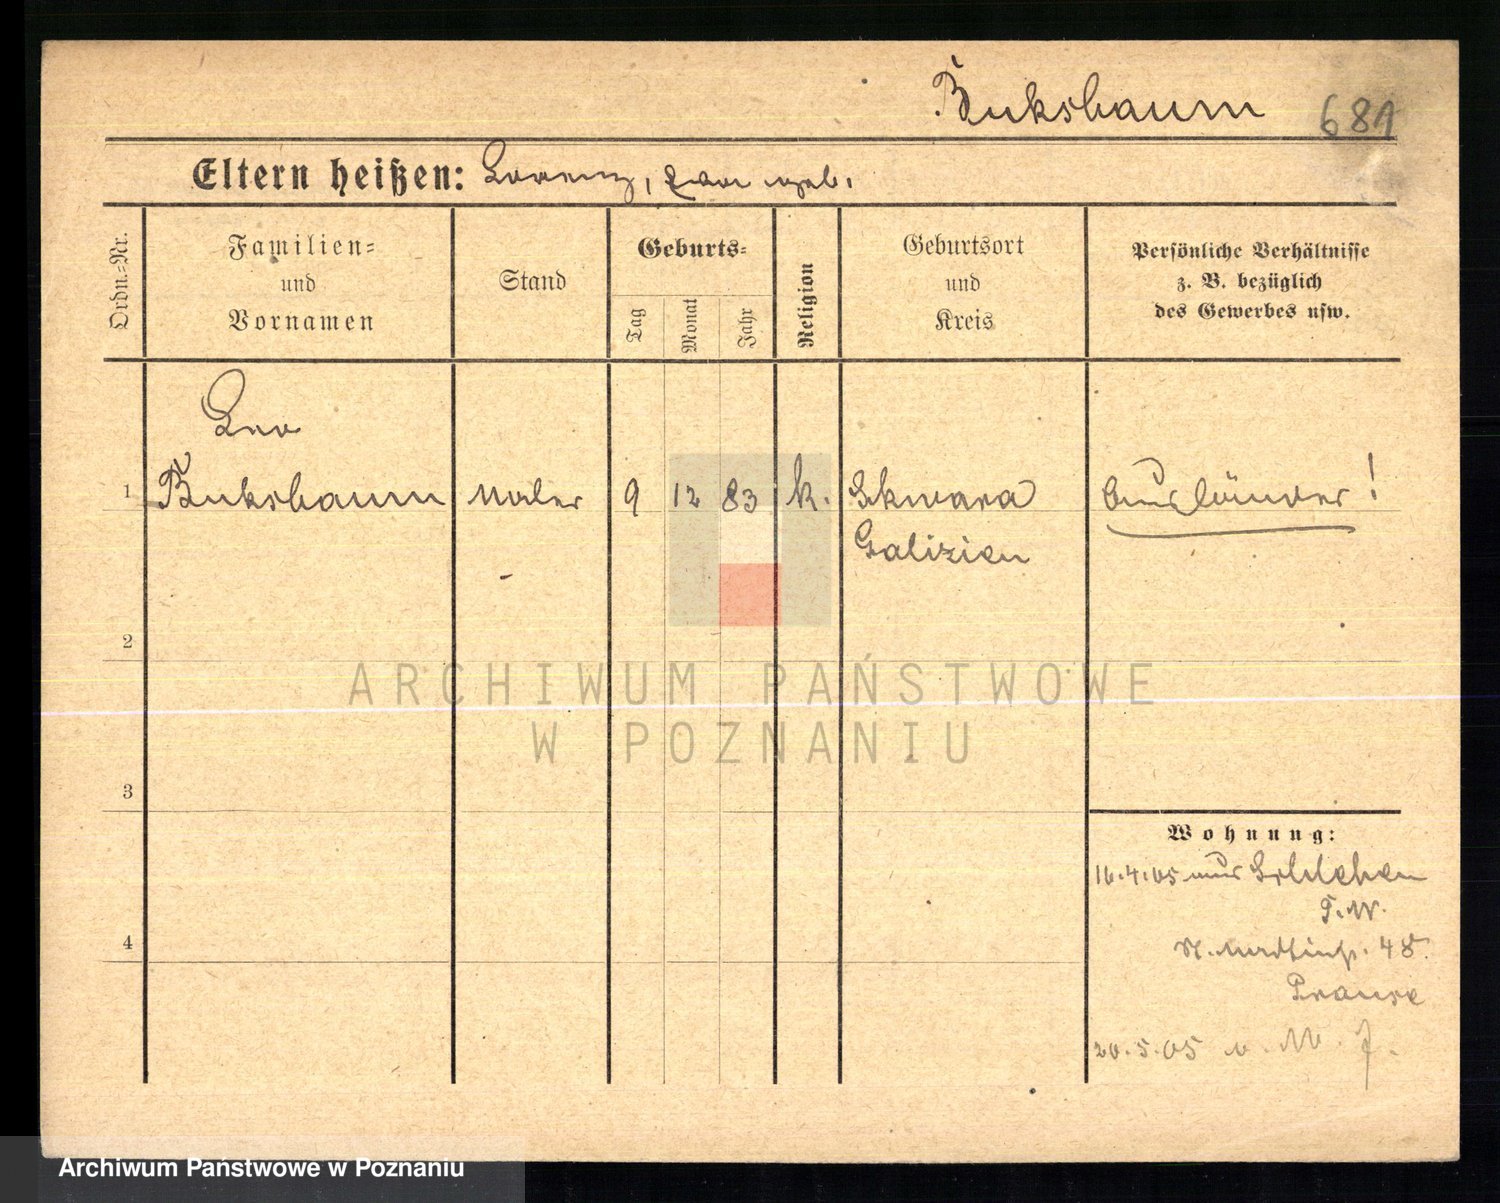 Buksbaum 681
Eltern heißen: Lorenz,
Ordn.=Nr.
Familien=
und
Vornamen
Stand
Geburts=
Tag
Monat
Jahr
Religion
Geburtsort
und
Kreis
Persönliche Verhältnisse
z. B. bezüglich
des Gewerbes usw.
Leo
1 Buksbaum Maler 9 12 83 k. Skwara Ausländer!
Galizien
2
3
4
Wohnung:
16.4.05 aus
48
20.5.05
ARCHIWUM PAŃSTWOWE
W POZNANIU
Archiwum Państwowe w Poznaniu